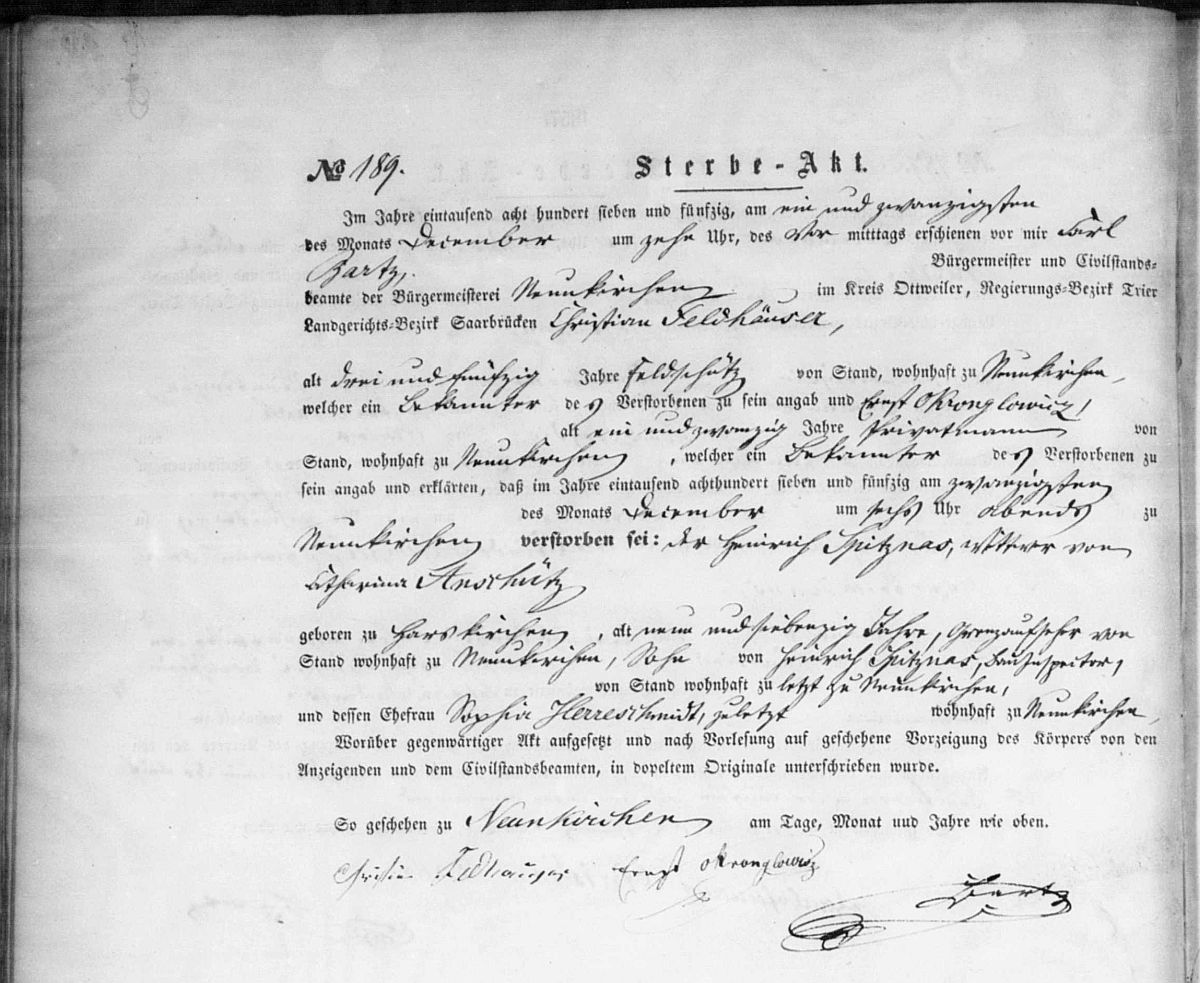 No 189. Sterbe-Akt.
Im Jahre eintausend acht hundert sieben und fünfzig, am ein und zwanzigsten
des Monats December um zehn Uhr, des Vor mitttags erschienen vor mir Carl
Hartz, Bürgermeister und Civilstands-
beamte der Bürgermeisterei Neunkirchen im Kreis Ottweiler, Regierungs-Bezirk Trier
Landgerichts-Bezirk Saarbrücken Christian Feldhäuser,
alt drei und fünfzig Jahre Feldschütz von Stand, wohnhaft zu Neunkirchen,
welcher ein Bekannter des Verstorbenen zu sein angab und Ernst Okronglowicz,
alt ein und zwanzig Jahre Privatmann von
Stand, wohnhaft zu Neunkirchen, welcher ein Bekannter des Verstorbenen zu
sein angab und erklärten, daß im Jahre eintausend achthundert sieben und fünfzig am zwanzigsten
des Monats December um sechs Uhr abends zu
Neunkirchen verstorben sei: der Heinrich Spitznas, Wittwer von
Catharina Anschütz
geboren zu Harskirchen, alt neun und siebenzig Jahre, Grenzaufseher von
Stand wohnhaft zu Neunkirchen, Sohn von Heinrich Spitznas, Bauinspector,
von Stand wohnhaft zu letzt zu Neunkirchen,
und dessen Ehefrau Sophia Herreschmidt, zuletzt wohnhaft zu Neunkirchen,
Worüber gegenwärtiger Akt aufgesetzt und nach Vorlesung auf geschehene Vorzeigung des Körpers von den
Anzeigenden und dem Civilstandsbeamten, in dopeltem Originale unterschrieben wurde.
So geschehen zu Neunkirchen am Tage, Monat und Jahre wie oben.
Christian Feldhäuser Ernst Okronglowicz
Hartz